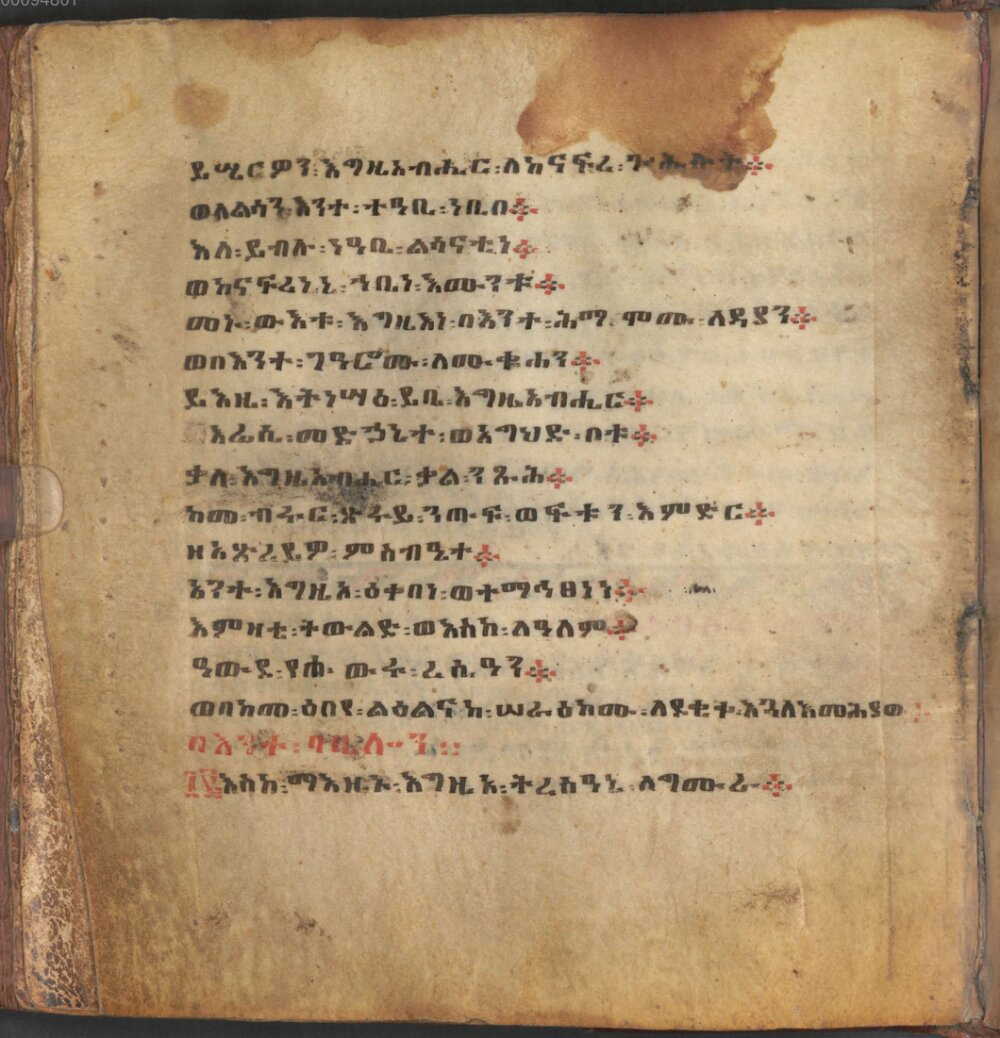 ይሤርዎን፡እግዚአብሔር፡ለከናፍረ፡ጕሕሉት፨
ወለልሳን፡እንተ፡ተዓቢ፡ነቢበ፨
እለ፡ይብሉ፡ነዓቢ፡ልሳናቲነ፨
ወከናፍሪነኒ፡ኀቤነ፡እሙንቱ፨
መኑ፡ውእቱ፡እግዚእነ፡በእንተ፡ሕማሞሙ፡ለነዳያን፨
ወበእንተ፡ገዓሮሙ፡ለሙቁሓን፨
ይእዜ፡እትነሣእ፡ይቤ፡እግዚአብሔር፨
እሬሲ፡መድኃኒተ፡ወእግህድ፡ቦቱ፨
ቃለ፡እግዚአብሔር፡ቃል፡ንጹሕ፨
ከመ፡ብሩር፡ጽሩይ፡ንጡፍ፡ወፍቱን፡እምድር፨
ዘአጽረይዎ፡ምስብዒተ፨
አንተ፡እግዚኦ፡ዕቀበነ፡ወተማኅፀነነ፨
እምዛቲ፡ትውልድ፡ወእስከ፡ለዓለም፨
ዓውደ፡የሐውሩ፡ረሲዓን፨
ወበከመ፡ዕበየ፡ልዕልናከ፡ሠራዕኮሙ፡ለደቂቀ፡እጓለእመሕያው፨
በእንተ፡ባቢሎን፨
፲፪እስከ፡ማእዜኑ፡እግዚኦ፡ትረስዓኒ፡ለግሙራ፨